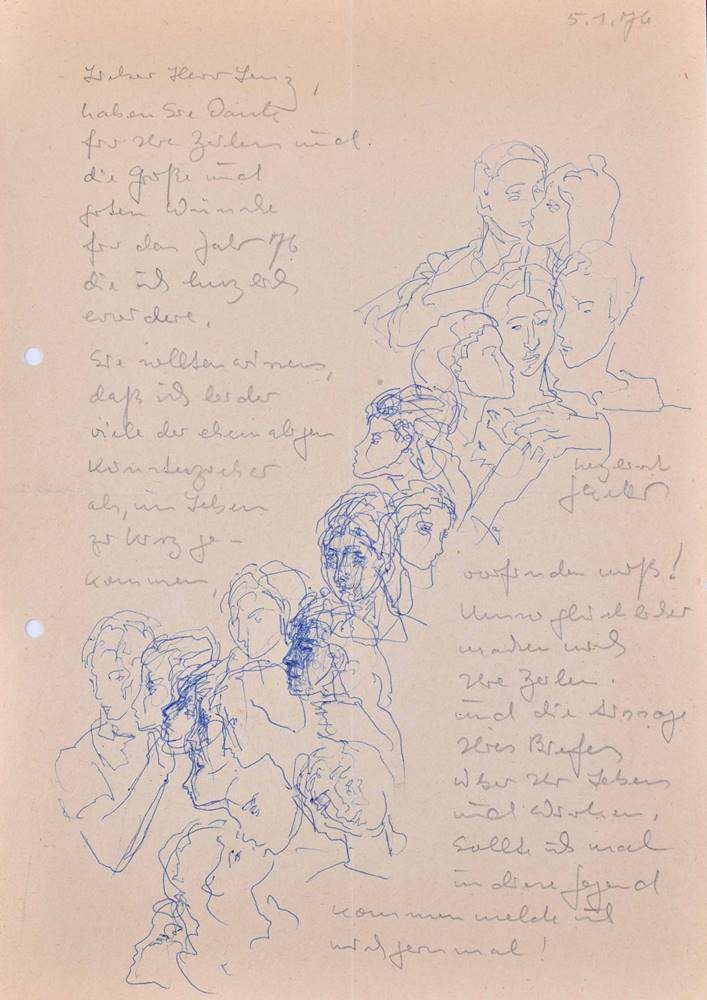 5.1.76
Lieber Herr Lenz,
haben Sie Dank
für Ihre Zeilen und
die Grüße und
guten Wünsche
für das Jahr 76
die ich herzlich
erwidere.
Sie sollten wissen,
daß ich leider
viele der ehemaligen
als, im Leben
zu kurz ge-
kommen,
vorfinden muß!
Umso glücklicher
machen mich
Ihre Zeilen.
und die Aussage
Ihres Briefes
über Ihr Leben
und Wirken.
Sollte ich mal
in diese Gegend
kommen melde ich
mich gern mal!
herzlichst